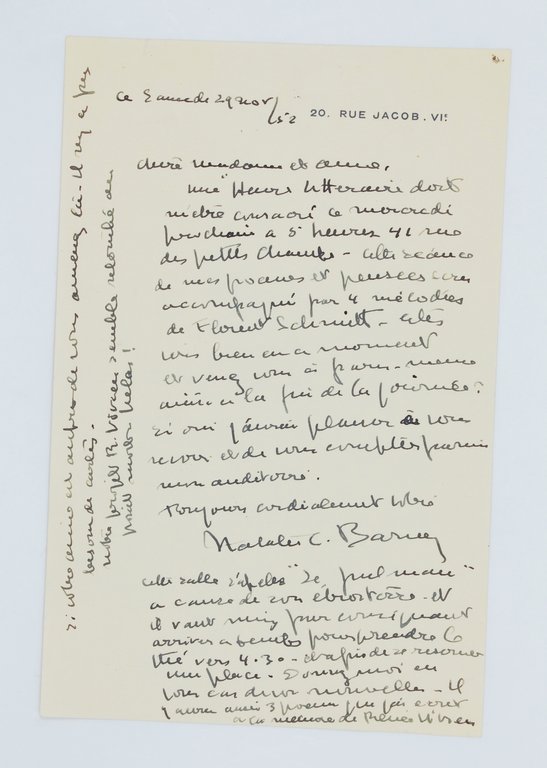 ce Samedi 29 nov/52
20. RUE JACOB. VIᵉ
chère Madame et amie,
une "Heure Littéraire" doit
m'être consacré ce mercredi
prochain à 5 heures 41 rue
des petits Champs - cette séance
de mes poèmes et pensées sera
accompagné par 4 mélodies
de Florent Schmitt - êtes
vous bien en ce moment
et venez vous à Paris - même
ainsi à la fin de la journée?
Si oui j'aurai plaisir de vous
revoir et de vous compter parmi
mon auditoire.
Toujours cordialement votre
Natalie C. Barney
cette salle s'appelle "Le pullman"
a cause de son étroitesse - et
il vaut mieux par conséquent
arriver à temps pour prendre le
thé vers 4.30 - et afin de se réserver
une place - Donnez moi en
tous cas de vos nouvelles - Il
y aura aussi 3 poèmes que j'ai écrit
a la mémoire de Renée Vivien
Si votre amie est auprès de vous amenez la - Il n'y a pas
besoin de cartes -
notre projet R. Vivien semble retombé au
point mort hélas!